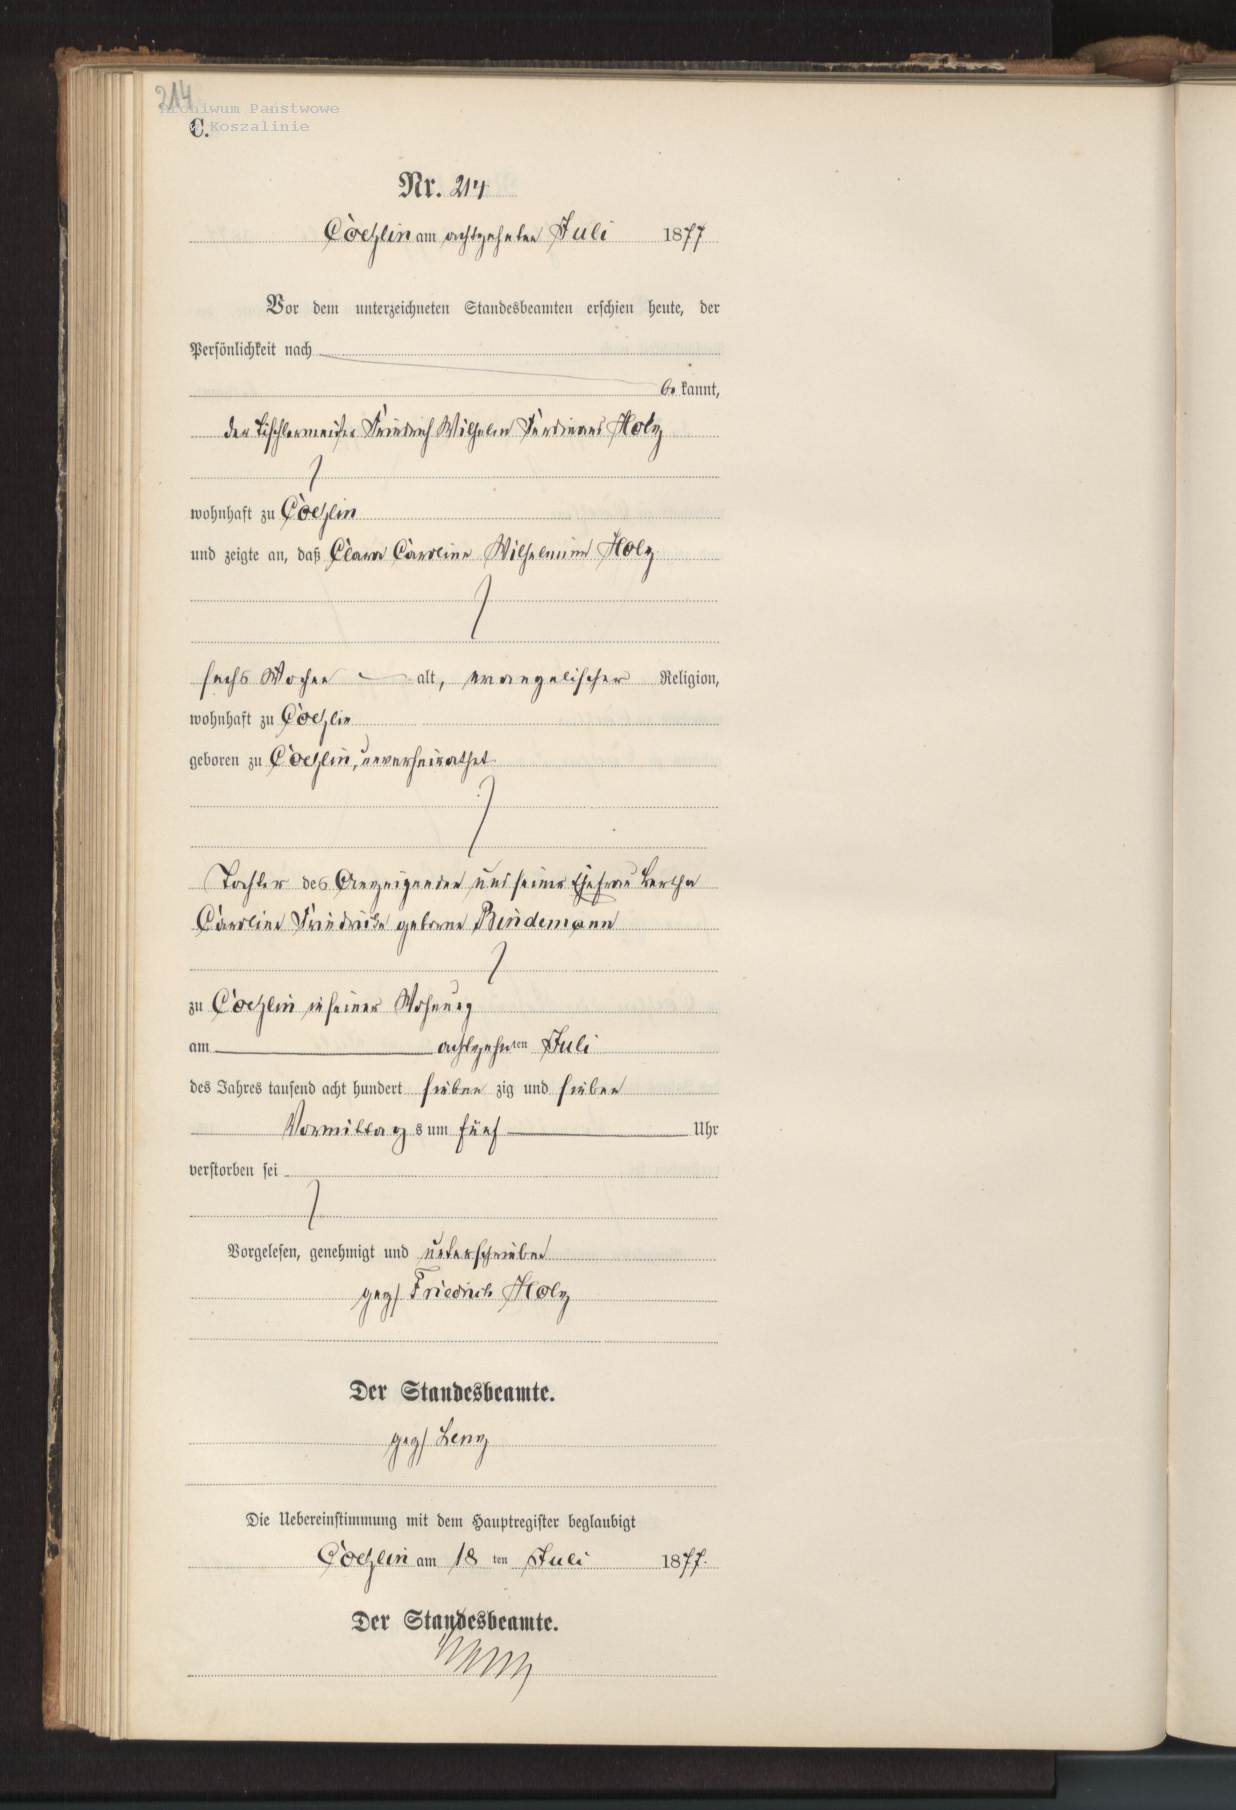 214
Archiwum Państwowe
w Koszalinie
C.
Nr. 214
Coeslin am achtzehnten Juli 1877
Vor dem unterzeichneten Standesbeamten erschien heute, der
Persönlichkeit nach
be kannt,
der Tischlermeister Friedrich Wilhelm Ferdinand Holz
wohnhaft zu Coeslin
und zeigte an, daß Clara Caroline Wilhelmine Holz
sechs Wochen alt, evangelischer Religion,
wohnhaft zu Coeslin
geboren zu Coeslin, unverheirathet
Tochter des Anzeigenden und seiner Ehefrau Bertha
Caroline Friedricke geborne Bindemann
zu Coeslin in seiner Wohnung
am achtzehnten Juli
des Jahres tausend acht hundert sieben zig und sieben
Vormittags um fünf Uhr
verstorben sei
Vorgelesen, genehmigt und unterschrieben
gez/ Friedrich Holz
Der Standesbeamte.
gez/ Lenz
Die Uebereinstimmung mit dem Hauptregister beglaubigt
Coeslin am 18 ten Juli 1877.
Der Standesbeamte.
Lenz